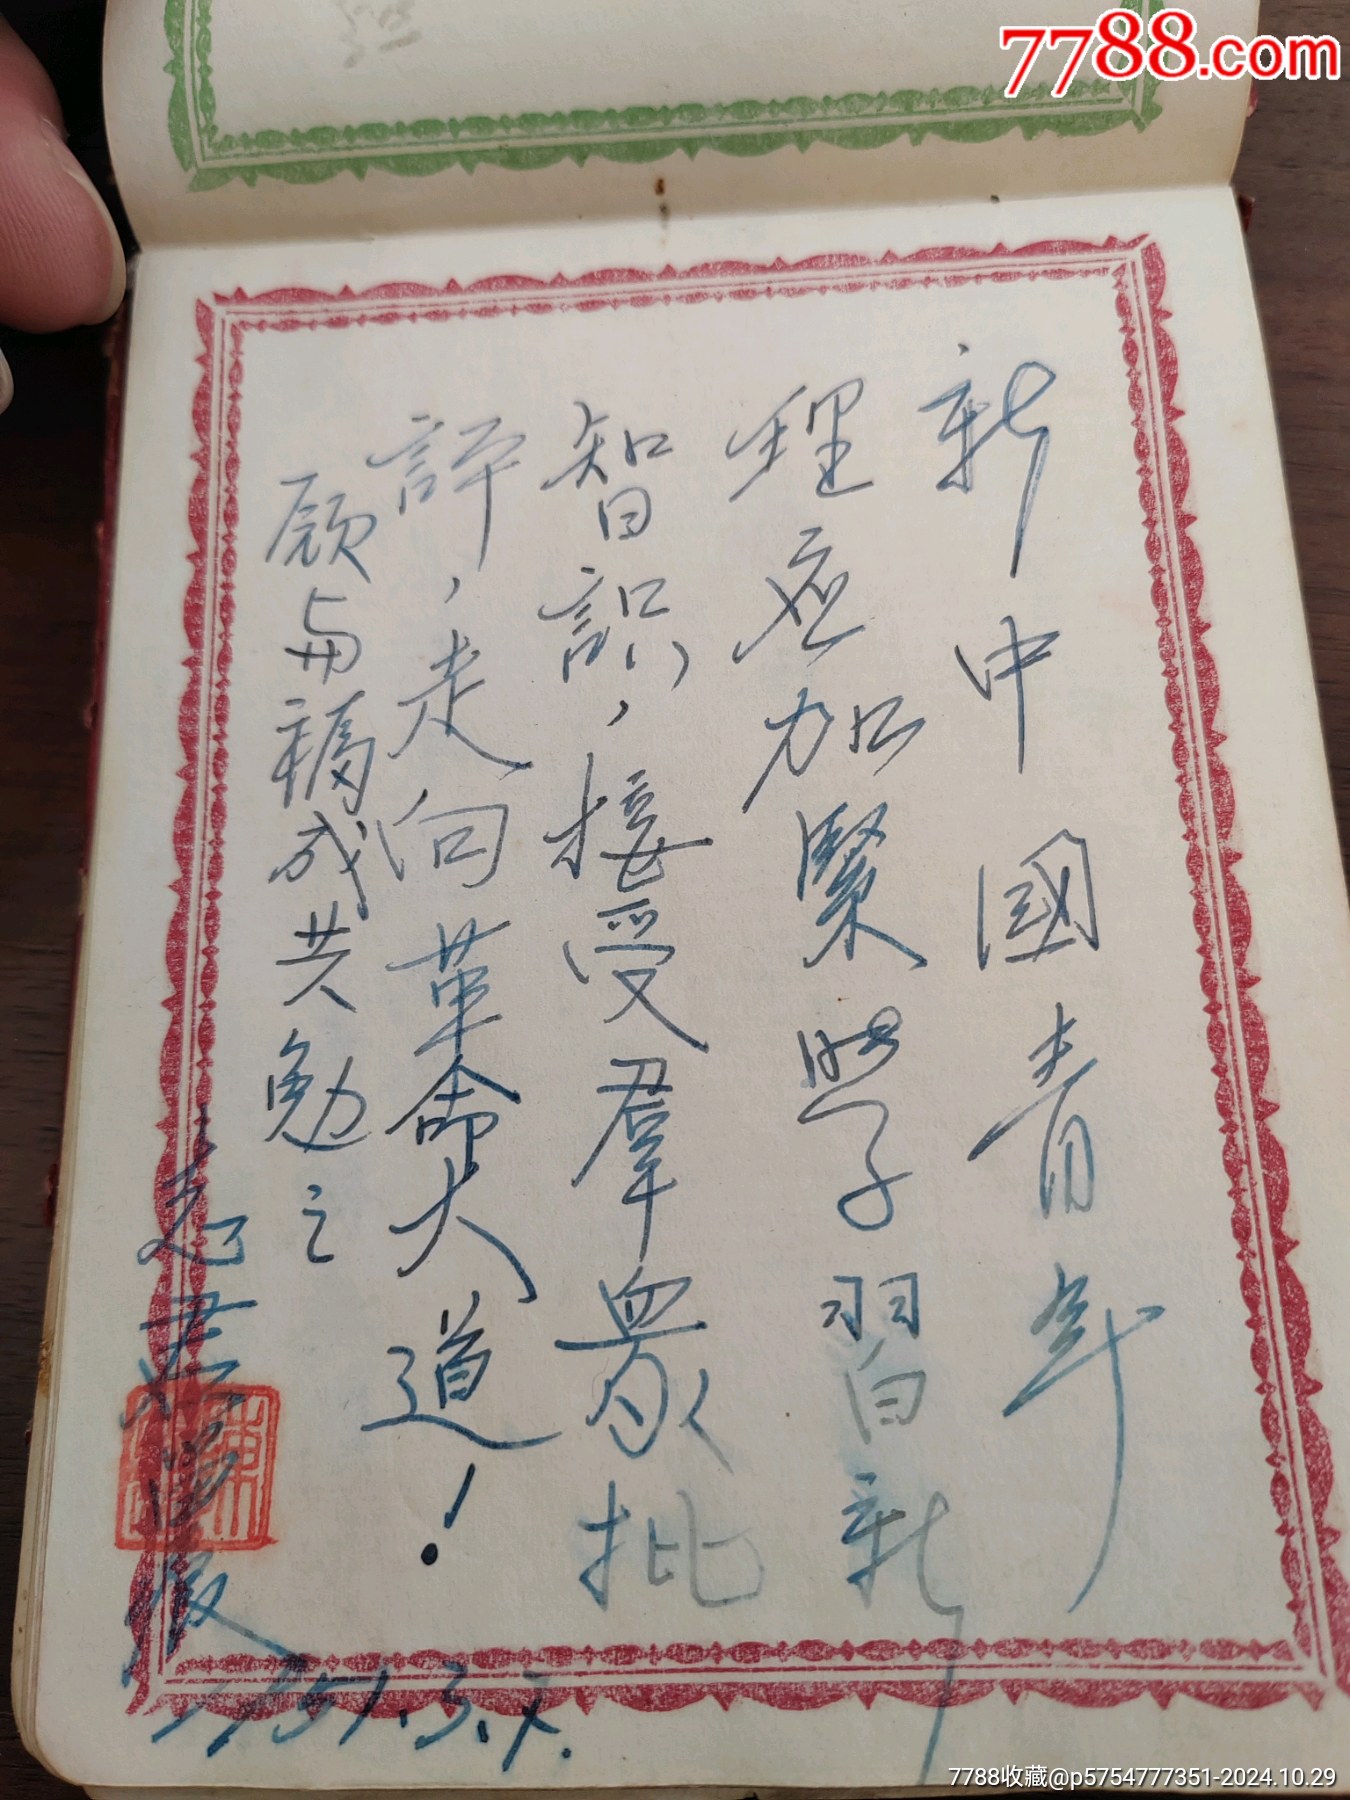 7788.com
新中國青年
理应加緊學習新
智識，接受羣眾批
評，走向革命大道！
願与福成共勉之
1951.3.7.
7788收藏@p5754777351-2024.10.29